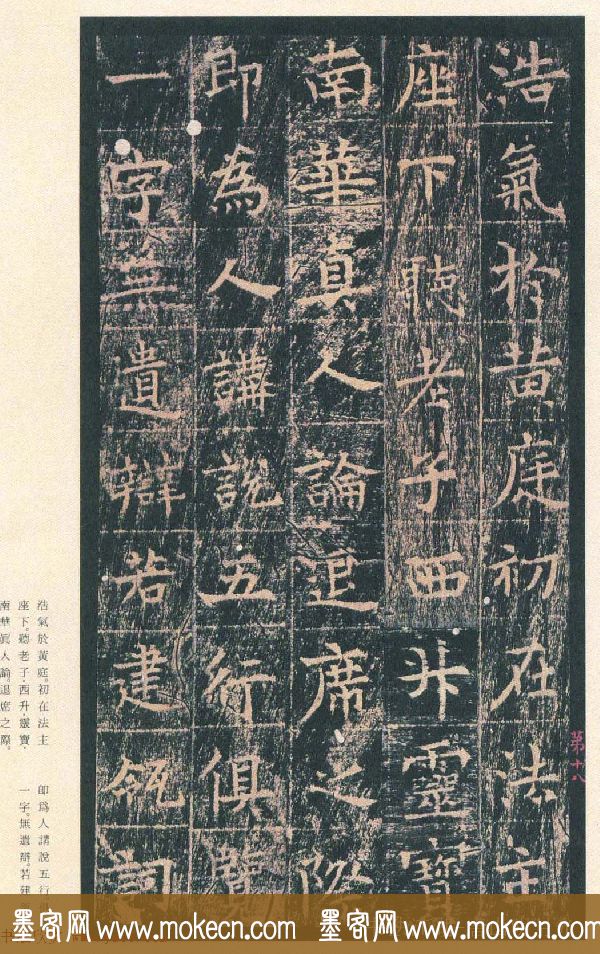 浩氣於黃庭初在法主
座下聽老子西升靈寶
南華真人論退席之際
即為人講說五行俱覽
一字無遺辯若建瓴詞
第十八
浩氣於黃庭。初在法主
座下。聽老子·西升·靈寶·
南華眞人論。退席之際。
即爲人講說五行
一字。無遺辯。若建
墨客网 www.mokecn.com 墨客网 www.mokecn.com